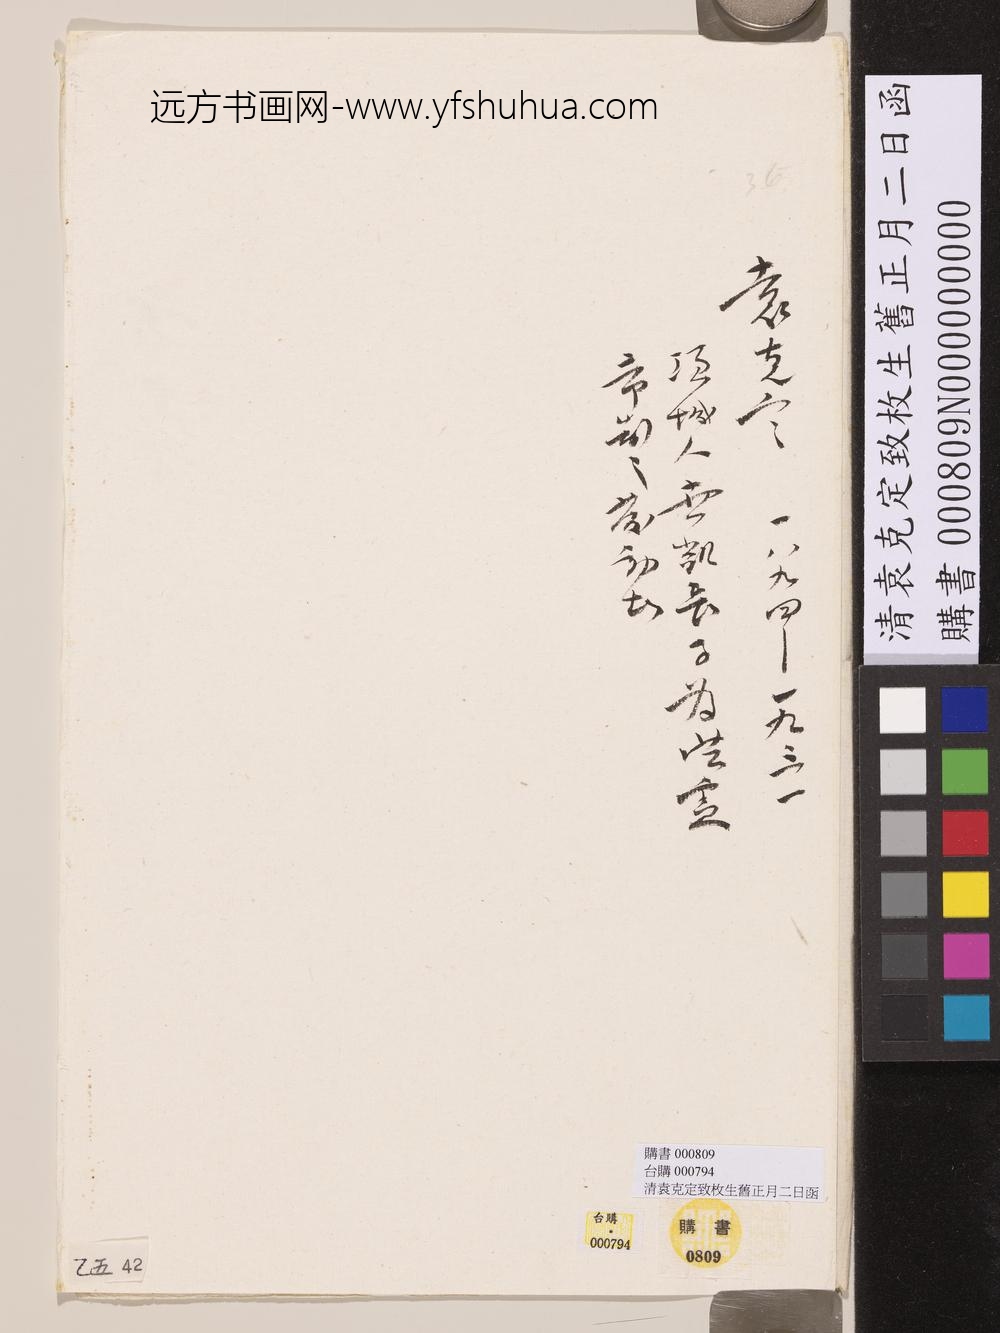 远方书画网-www.yfshuhua.com
36
袁克定 一八九四—一九三一
項城人世凱長子為洪憲
帝制之發動者
清袁克定致枚生舊正月二日函
購書 000809N000000000
購書 000809
台購 000794
清袁克定致枚生舊正月二日函
台購
000794
購書
0809
乙五 42